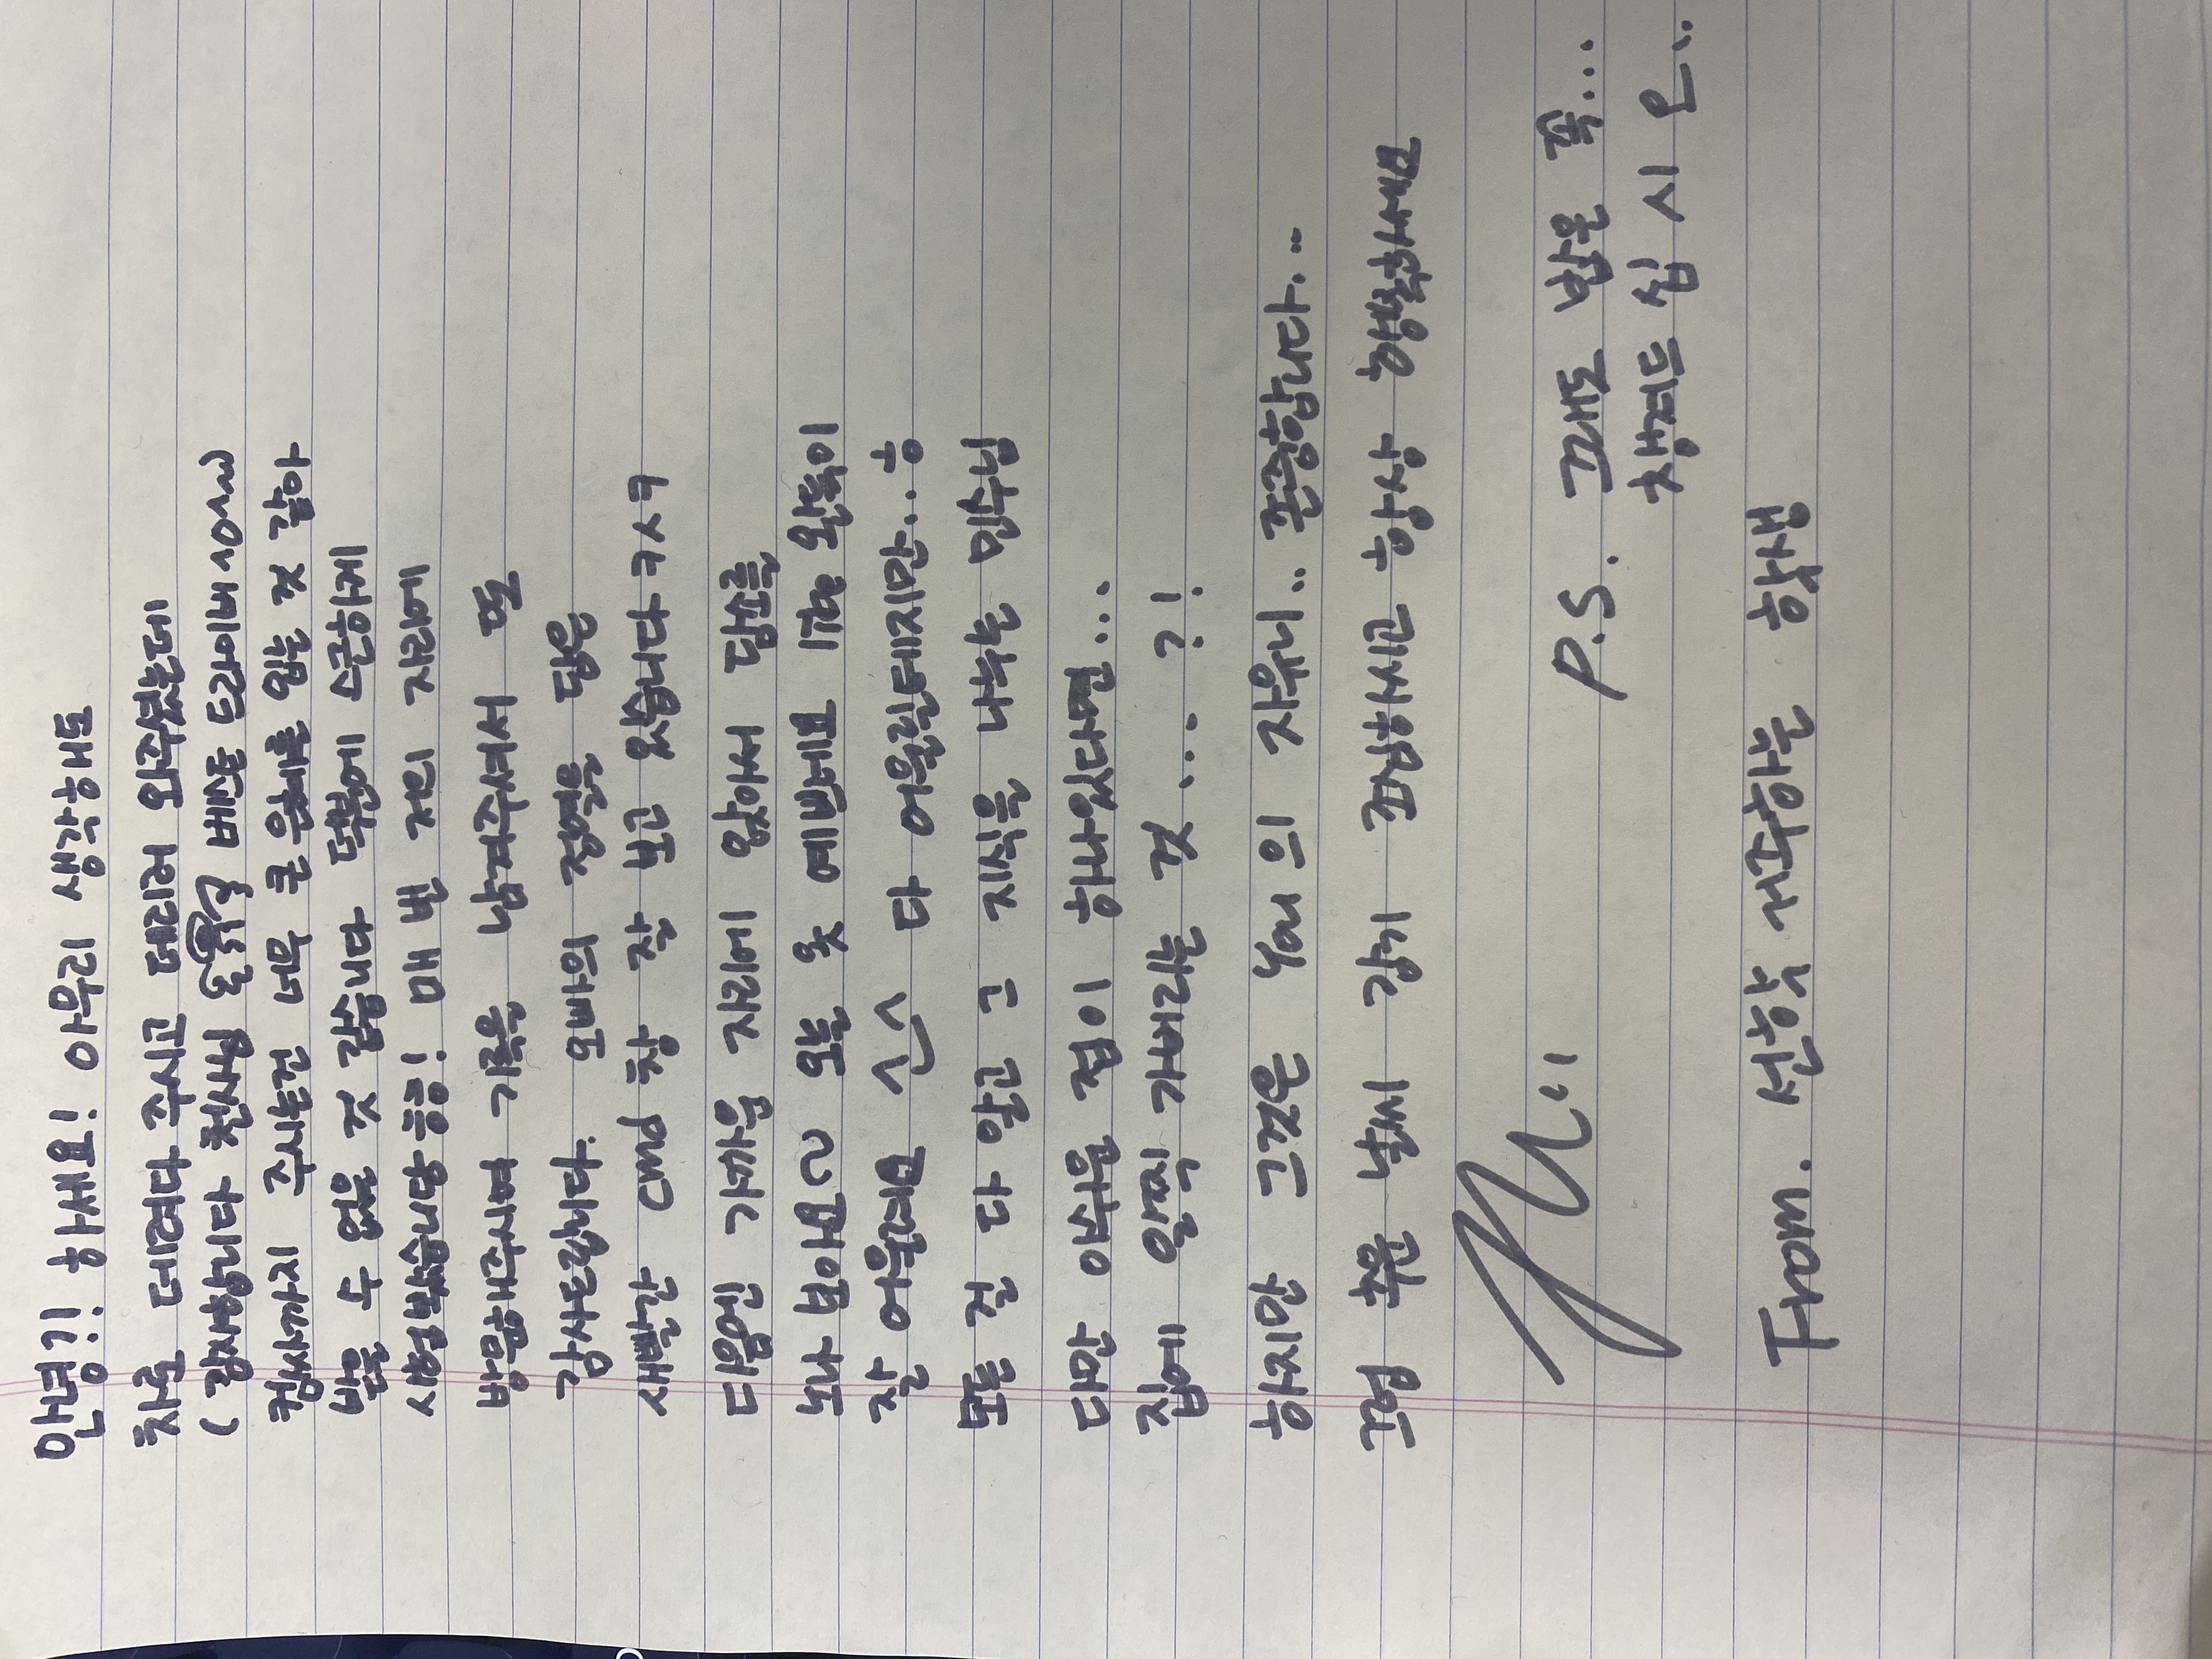 안녕?! 하세요! 아무리 생각해도
차로 데려다 주시고 데리러 와주셨는데
( 감사합니다 천사님 베스트 드라이버 ^o^~)
컴싸까지 주시는건 너무 큰 은혜를 입는 것 같아
받을 수 없을 것 같습니다 덕분에 스근하게
시험봤습니당 흐흐! 매 번 저의 자리에
방문해주시며 기록을 남겨주셔서 또
감사드립니다. 오빠의 정열을 담은
새빨간 cmd 창 잘 보고 있습니다 ㅋㅅㅋ
다음엔 가까운 자리에 앉아서 담소를
노나 보아요~ 오늘 옷 예쁘네요 like 완득이
잘 어울려요 ^_^ 다 어울릴테지만..ㅎ
모든 걸 다 알고 그 지식을 나누는 민수님
다만 아쉬운 점이 하나있다면...
집에 일찍 가버리는 것... ?!
하지만 그것은 You 의 자유니.. 존중합니다...
그럼 추운 날씨 감기 조심하시고 항상 행복하세요
P.S. 그래도 밥은 꼭...
챙겨드 십 시 오..
From. 선학 거주하는 학생